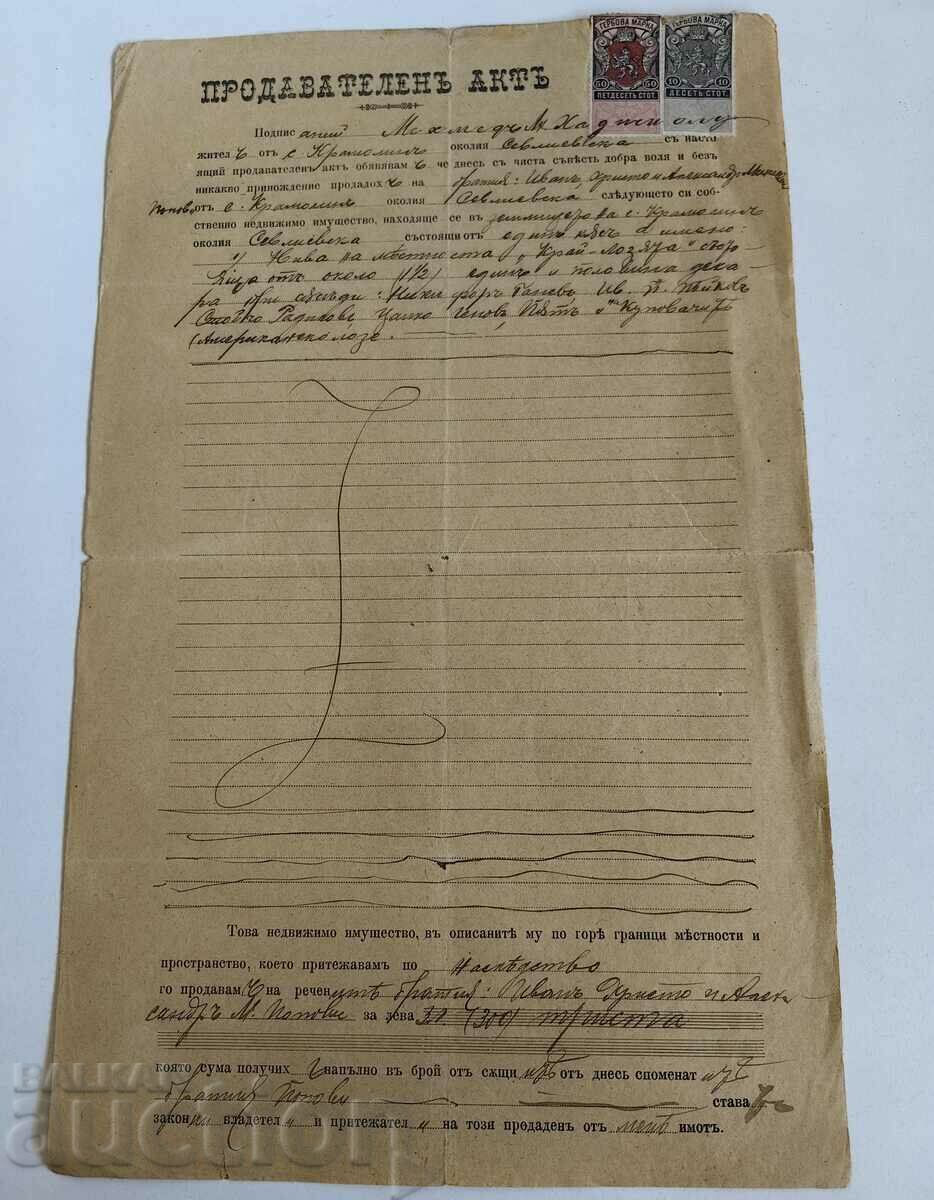 ГЕРБОВА МАРКА ГЕРБОВА МАРКА
50 50 10 10
ПЕТДЕСЕТЬ СТОТ. ДЕСЕТЬ СТОТ.
ПРОДАВАТЕЛЕНЪ АКТЪ
Подпис аний Мехмедъ М.
жител ъ от с. Крамолинъ околия Севлиевска съ насто
ящий продавателен актъ обявявам ъ че днесь съ чиста съвѣсть добра воля и безъ
никакво принождение продадох ъ на братия: Иванъ, Христо и Александъръ
Попови отъ с. Крамолинъ околия Севлиевска следующето си соб-
ственно недвижимо имущество, находяще се въ землището на с. Крамолинъ
околия Севлиевска състоящи отъ единъ а имено:
1) Нива на мѣстноста „Край-Лозята“
отъ около (1½) единъ и половина дека
ра при съсѣди: Никифоръ Ганевъ, Ив. П.
Цанко Геновъ, Пѫтъ и Купувачитѣ
(Американско лозе.
Това недвижимо имущество, въ описанитѣ му по горѣ граници мѣстности и
пространство, което притежавамъ по наследство
го продавамъ на речен итѣ братия: Иванъ Христо и Алек
сандръ М. Попови за лева (300) триста
която сума получих ъ напълно въ брой отъ сѫщи итѣ отъ днесь споменат итѣ
братия Попови става
законни владетел и и притежател и на този продаденъ отъ мене имотъ.
БАЛКАН
аукцион